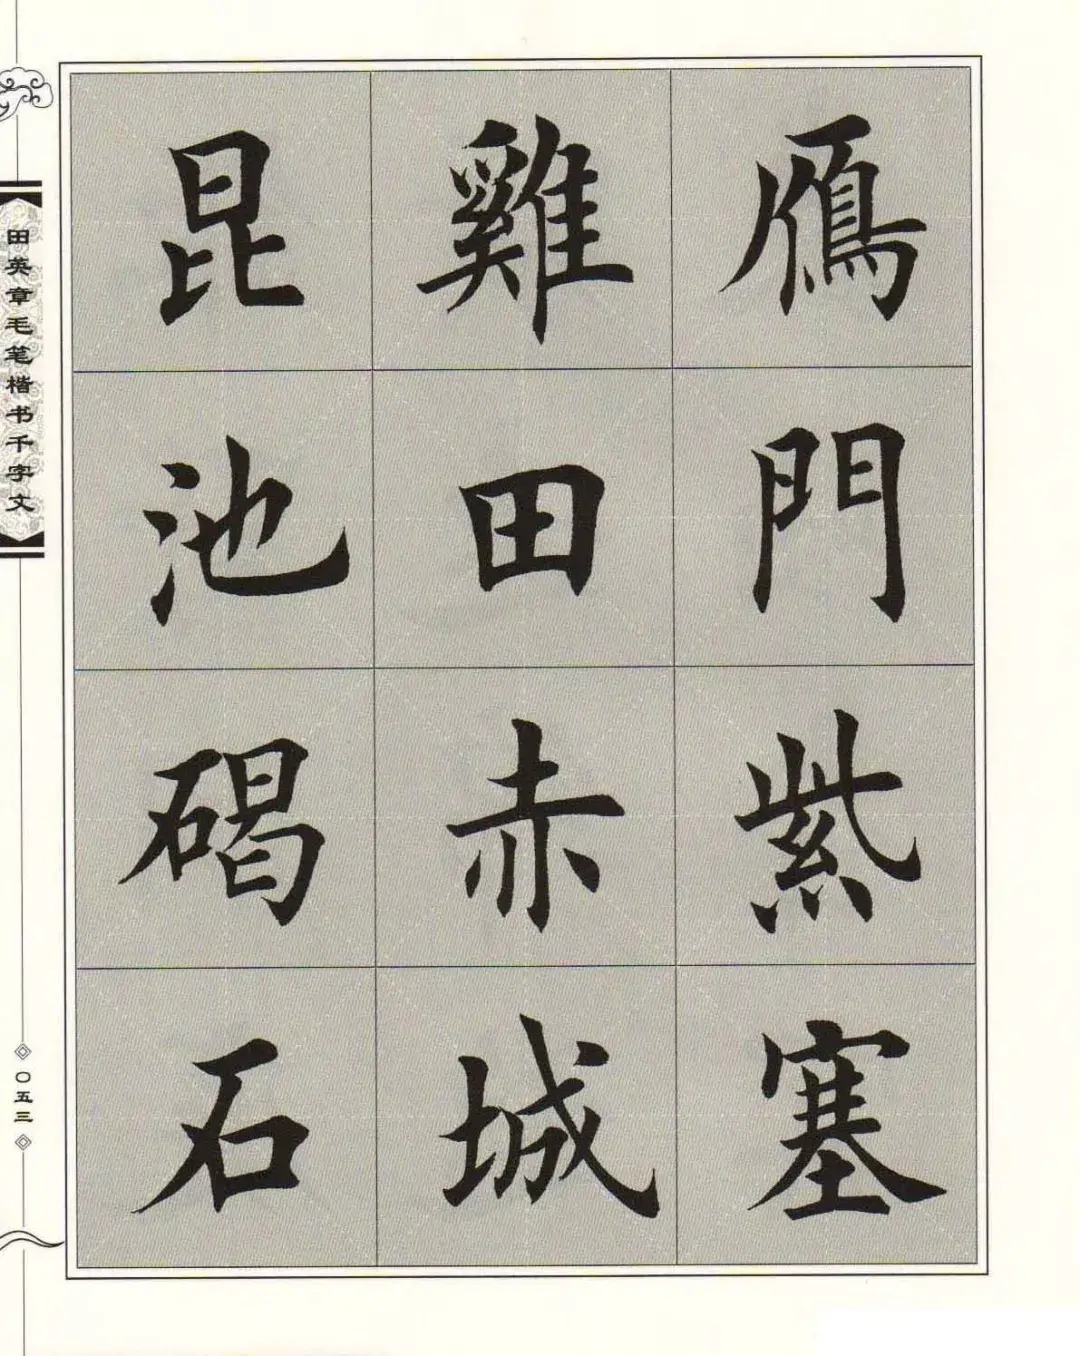 鴈門紫塞
雞田赤城
昆池碣石
田英章毛笔楷书千字文
〇五三